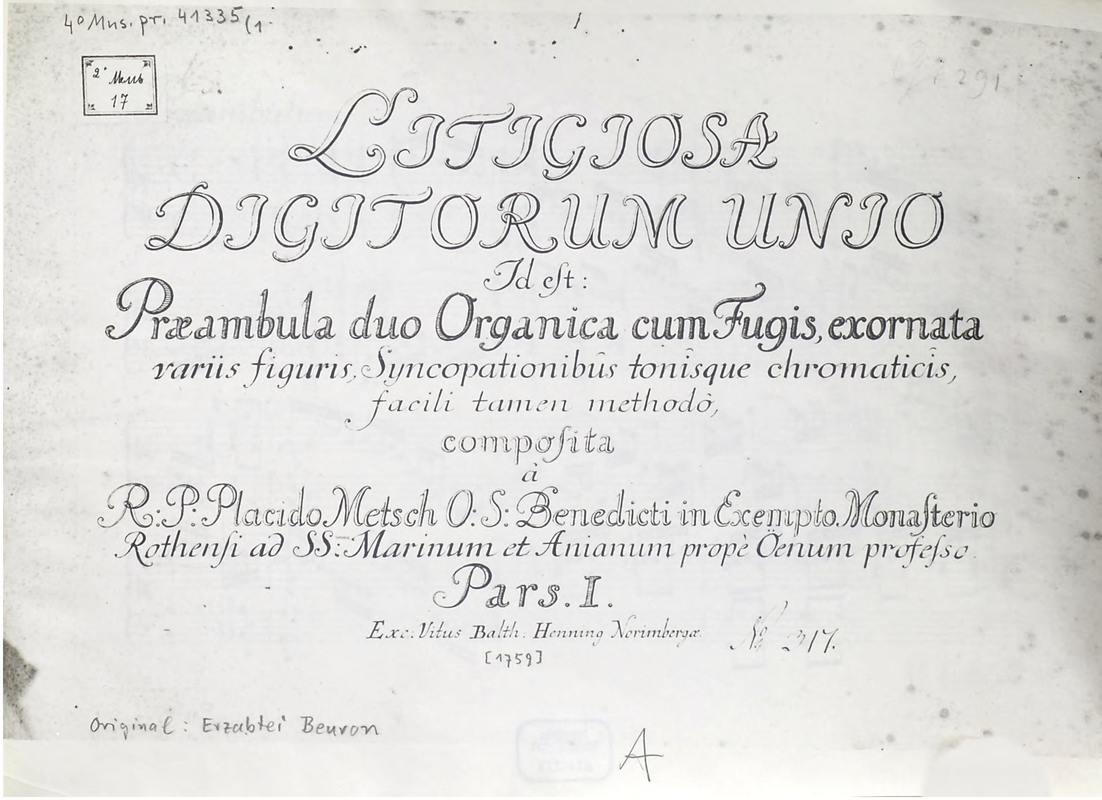 4° Mus. pr. 41335/1
2° Mus
17
291
LITIGIOSA
DIGITORUM UNIO
Id eſt:
Præambula duo Organica cum Fugis, exornata
variis figuris, Syncopationibûs tonisque chromaticis,
facili tamen methodô,
compoſita
à
R: P: Placido Metsch O: S: Benedicti in Exempto Monaſterio
Rothenſi ad SS: Marinum et Anianum propè Öenum profeſso.
Pars. I.
Exc. Vitus Balth. Henning Norimbergæ.
No 317.
[1759]
Original: Erzabtei Beuron
A